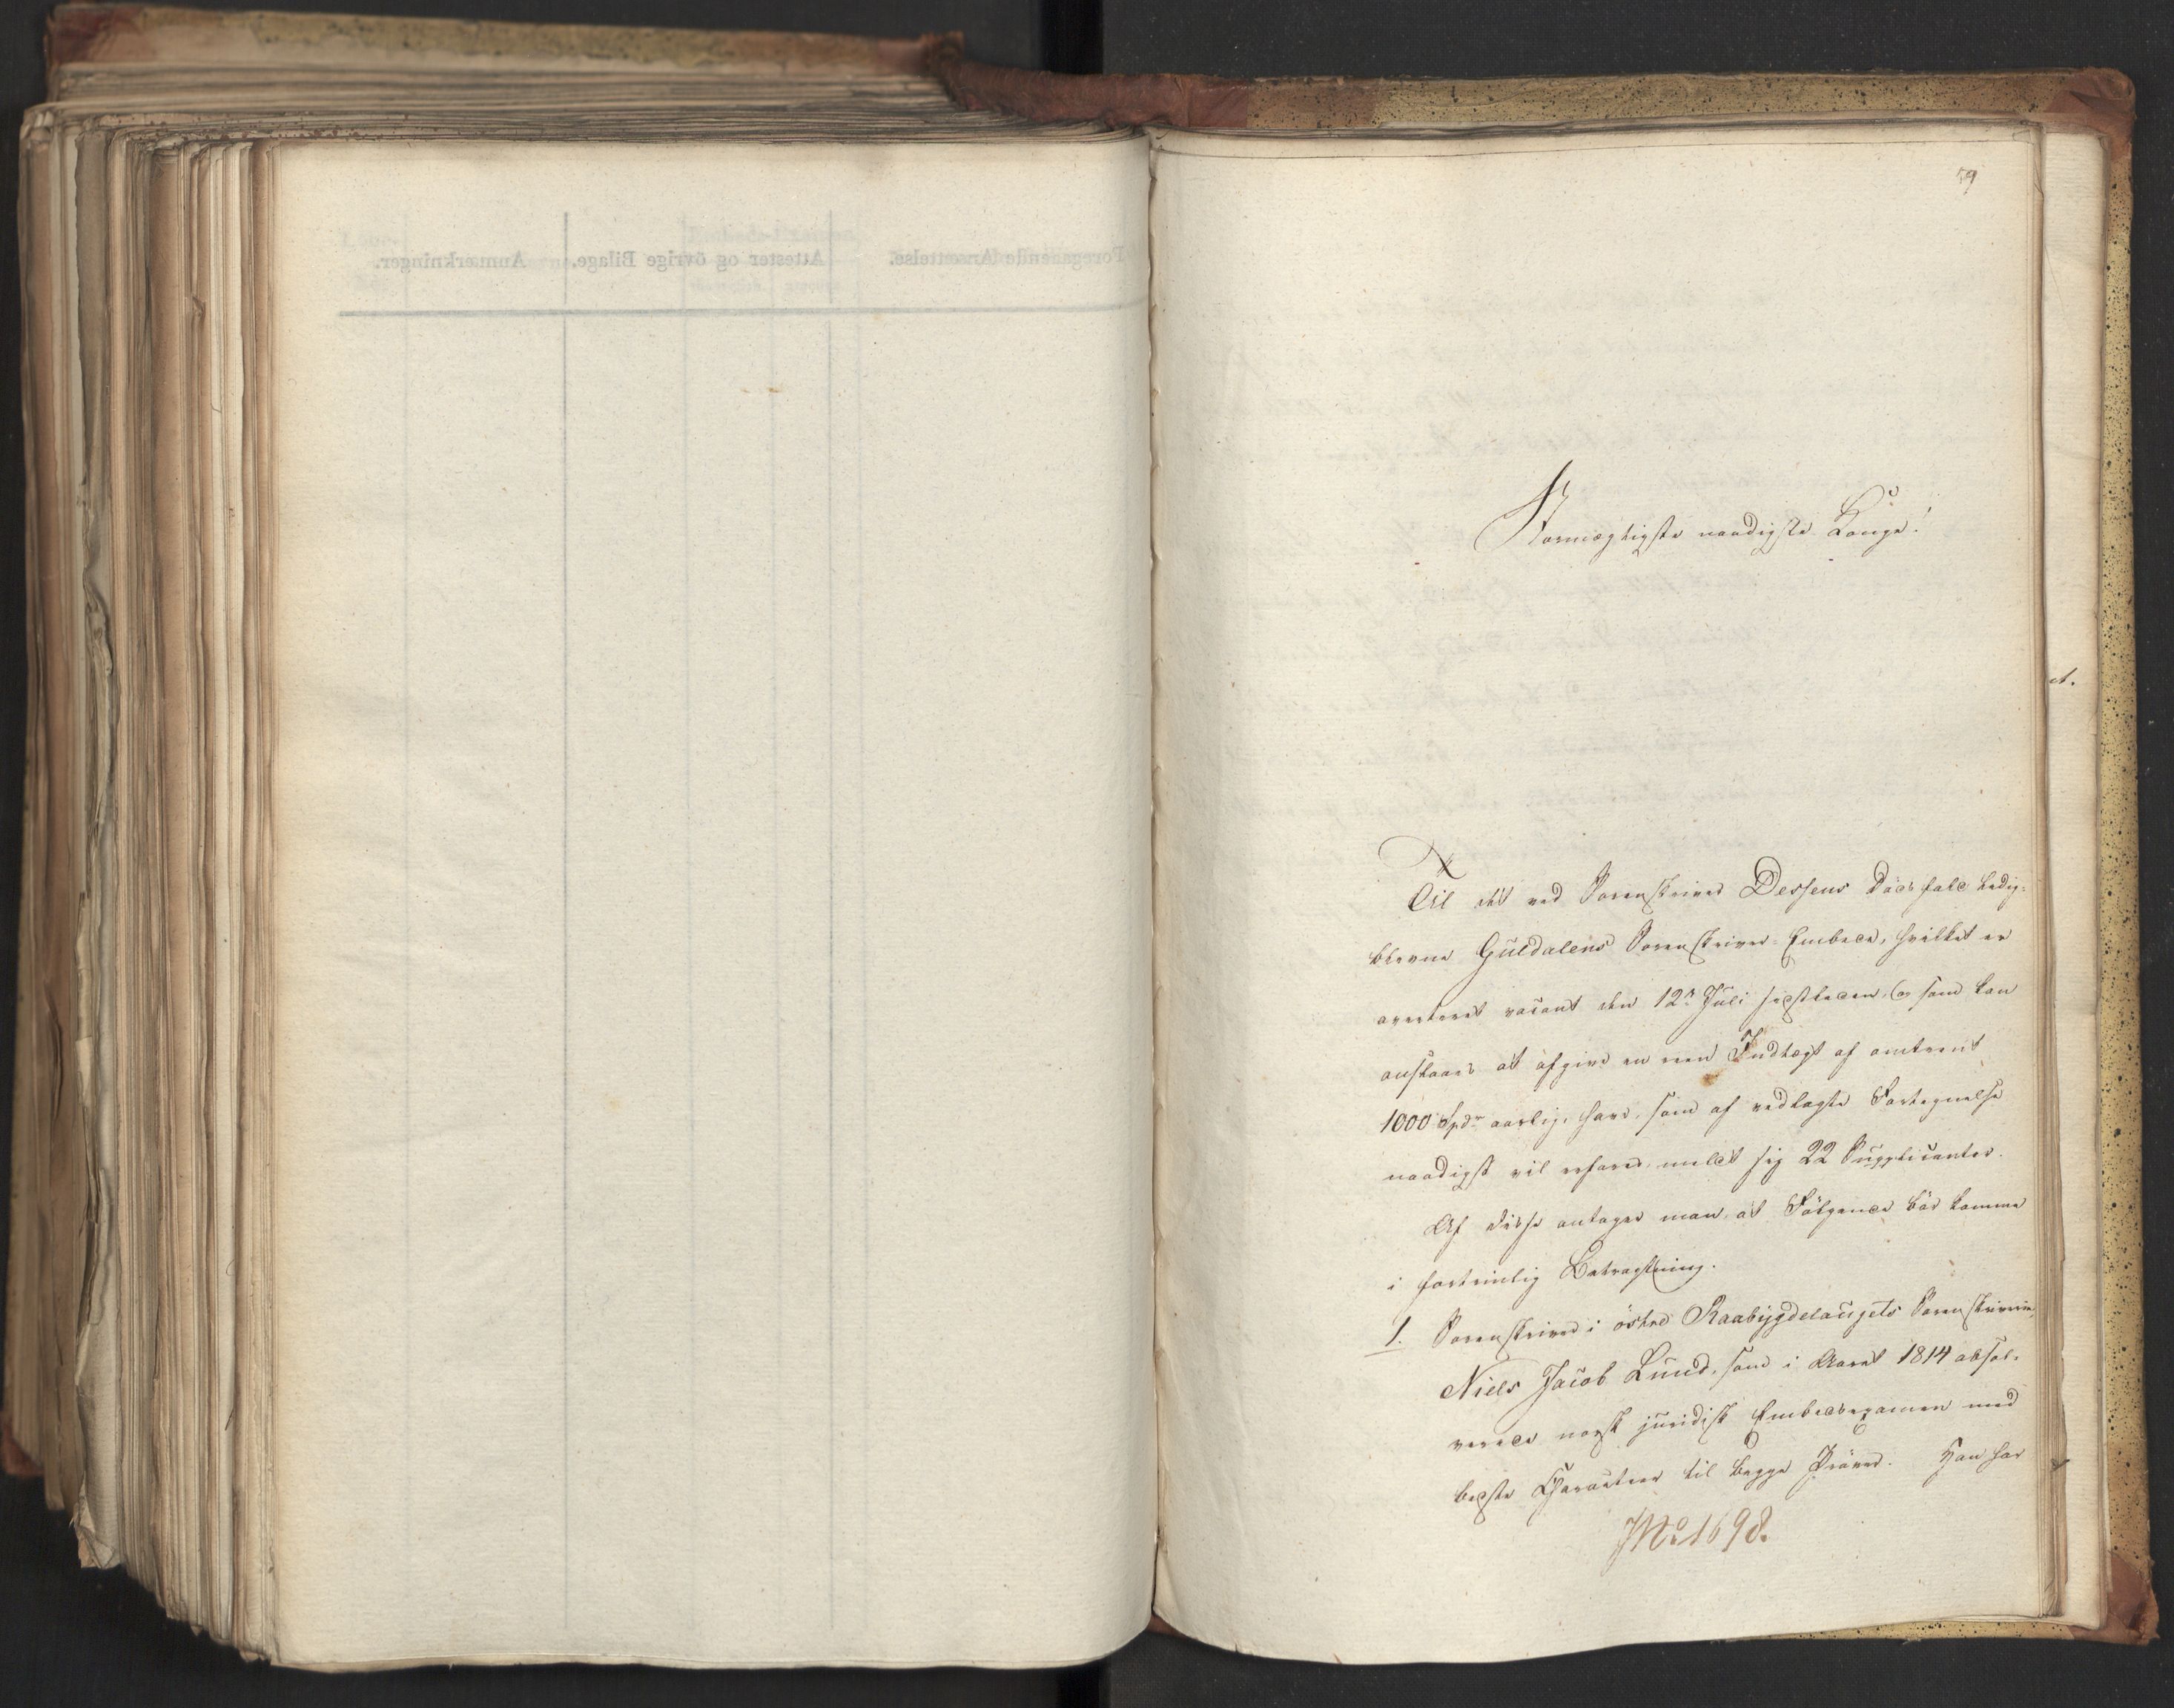 59
Stormægtigste naadigste Konge!
Til det ved Sorenskriver Dessens Dødsfald ledig-
blevne Guldalens Sorenskriver-Embede, hvilket er
averteret vacant den 12te Juli sidstleden, og som kan
anslaaes at afgive en reen Indtægt af omtrent
1000 Spdr aarlig, have, som af vedlagte Fortegnelse
naadigst vil erfares, meldt sig 22 Supplicanter.
Af disse antager man, at Følgende bør komme
i fortrinlig Betragtning.
1. Sorenskriver i östre Raabygdelaugets Sorenskriverie,
Niels Jacob Lund, som i Aaret 1814 absol-
verede norsk juridisk Embedsexamen med
bedste Charakteer til begge Prøver. Han har
JNo 1698.
Foregaaende Ansættelse.
Attester og övrige Bilage.
Anmærkninger.